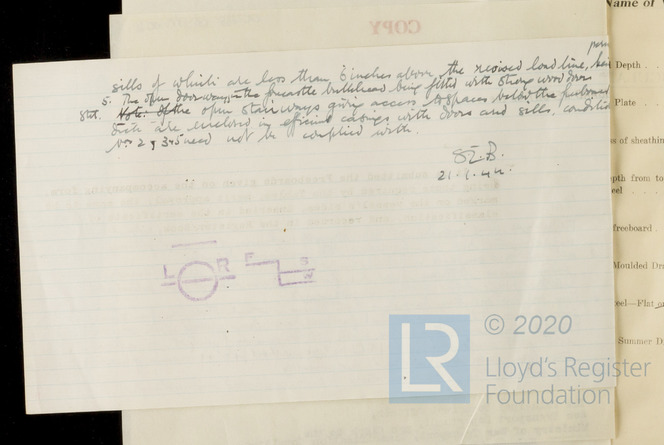 COPY
Name of V
perm
sills of which are less than 6 inches above the revised load line, being
5. The open doorways in the forecastle bulkhead being fitted with strong wood doors
Stet. Note: If the open stairways giving access to spaces below the freeboard
deck are enclosed in efficient casings with doors and sills, conditions
Nos 2 & 3 need not be complied with.
21.1.44.
L R F S W
Depth
Plate
s of sheathin
pth from to
eel
freeboard
Moulded Dr
eel—Flat
Summer D
LR
© 2020
Lloyd's Register
Foundation